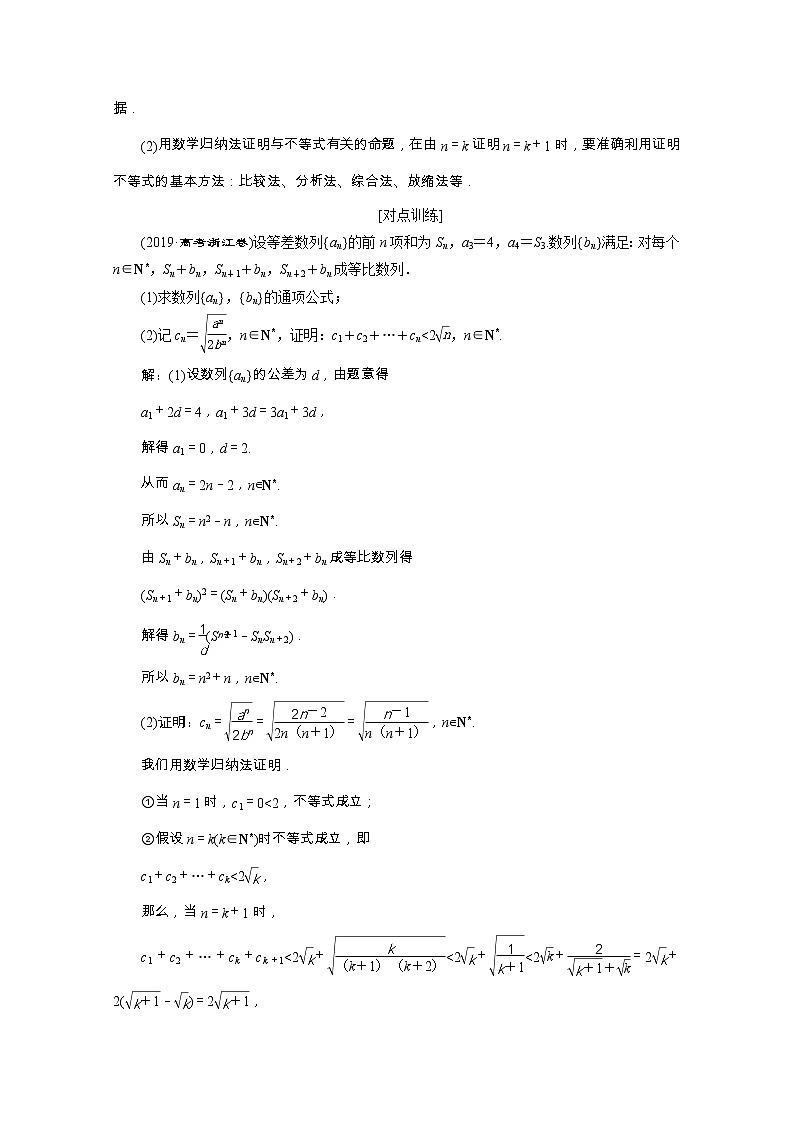 据．
(2)用数学归纳法证明与不等式有关的命题，在由 n＝k 证明 n＝k＋1 时，要准确利用证明
不等式的基本方法：比较法、分析法、综合法、放缩法等．
[对点训练]
(2019·高考浙江卷)设等差数列{aₙ}的前 n 项和为 Sₙ，a₃＝4，a₄＝S₃.数列{bₙ}满足：对每个
n∈N*，Sₙ＋bₙ，Sₙ₊₁＋bₙ，Sₙ₊₂＋bₙ 成等比数列．
(1)求数列{aₙ}，{bₙ}的通项公式；
(2)记 cₙ＝√(aⁿ/2bⁿ)，n∈N*，证明：c₁＋c₂＋…＋cₙ<2√n，n∈N*.
解：(1)设数列{aₙ}的公差为 d，由题意得
a₁＋2d＝4，a₁＋3d＝3a₁＋3d，
解得 a₁＝0，d＝2.
从而 aₙ＝2n－2，n∈N*.
所以 Sₙ＝n²－n，n∈N*.
由 Sₙ＋bₙ，Sₙ₊₁＋bₙ，Sₙ₊₂＋bₙ 成等比数列得
(Sₙ₊₁＋bₙ)²＝(Sₙ＋bₙ)(Sₙ₊₂＋bₙ)．
解得 bₙ＝1/d(S²ₙ₊₁－SₙSₙ₊₂)．
所以 bₙ＝n²＋n，n∈N*.
(2)证明：cₙ＝√(aⁿ/2bⁿ)＝√((2n－2)/(2n（n＋1）))＝√((n－1)/(n（n＋1）))，n∈N*.
我们用数学归纳法证明．
①当 n＝1 时，c₁＝0<2，不等式成立；
②假设 n＝k(k∈N*)时不等式成立，即
c₁＋c₂＋…＋cₖ<2√k，
那么，当 n＝k＋1 时，
c₁＋c₂＋…＋cₖ＋cₖ₊₁<2√k＋√(k/(（k＋1）（k＋2）))<2√k＋√(1/(k＋1))<2√k＋2/(√(k＋1)＋√k)＝2√k＋
2(√(k＋1)－√k)＝2√(k＋1)，